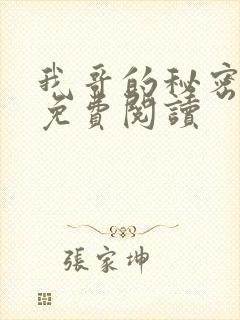 我哥的秘密
免費閱讀
張家坤